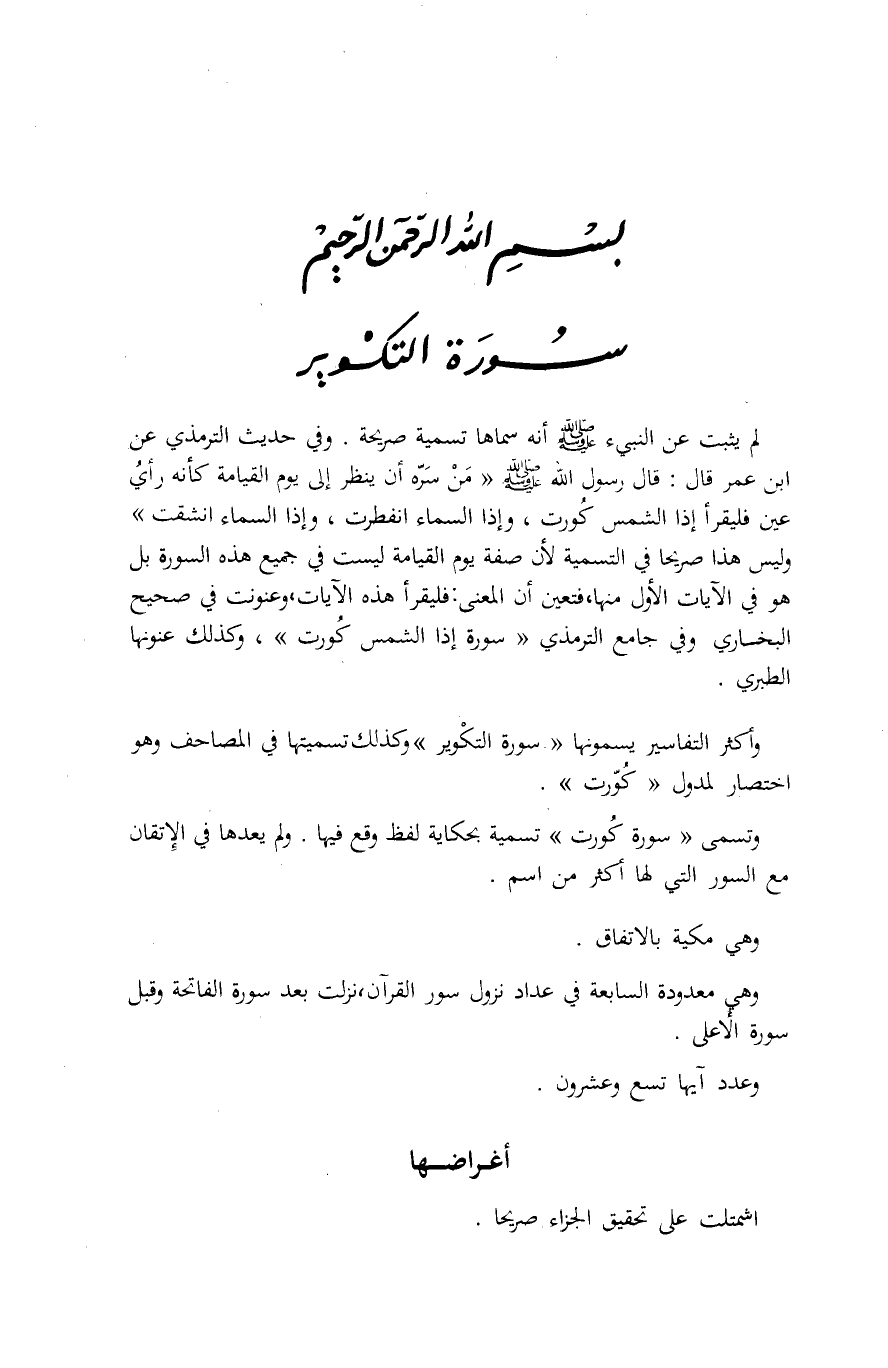 بِسْمِ اللهِ الرَّحْمَنِ الرَّحِيمِ
سُورَة التكْوير
لم يثبت عن النبيء ﷺ أنه سماها تسمية صريحة . وفي حديث الترمذي عن
ابن عمر قال : قال رسول الله ﷺ « مَنْ سَرّه أن ينظر إلى يوم القيامة كأنه رأيُ
عين فليقرأ إذا الشمس كُورت ، وإذا السماء انفطرت ، وإذا السماء انشقت »
وليس هذا صريحا في التسمية لأن صفة يوم القيامة ليست في جميع هذه السورة بل
هو في الآيات الأول منها،فتعين أن المعنى:فليقرأ هذه الآيات،وعنونت في صحيح
البخاري وفي جامع الترمذي « سورة إذا الشمس كُورت » ، وكذلك عنونها
الطبري .
وأكثر التفاسير يسمونها « سورة التكْوير »وكذلك تسميتها في المصاحف وهو
اختصار لمدول « كُوّرت » .
وتسمى « سورة كُورت » تسمية بحكاية لفظ وقع فيها . ولم يعدها في الإِتقان
مع السور التي لها أكثر من اسم .
وهي مكية بالاتفاق .
وهي معدودة السابعة في عداد نزول سور القرآن،نزلت بعد سورة الفاتحة وقبل
سورة الأعلى .
وعدد آيها تسع وعشرون .
أغراضها
اشتملت على تحقيق الجزاء صريحا .